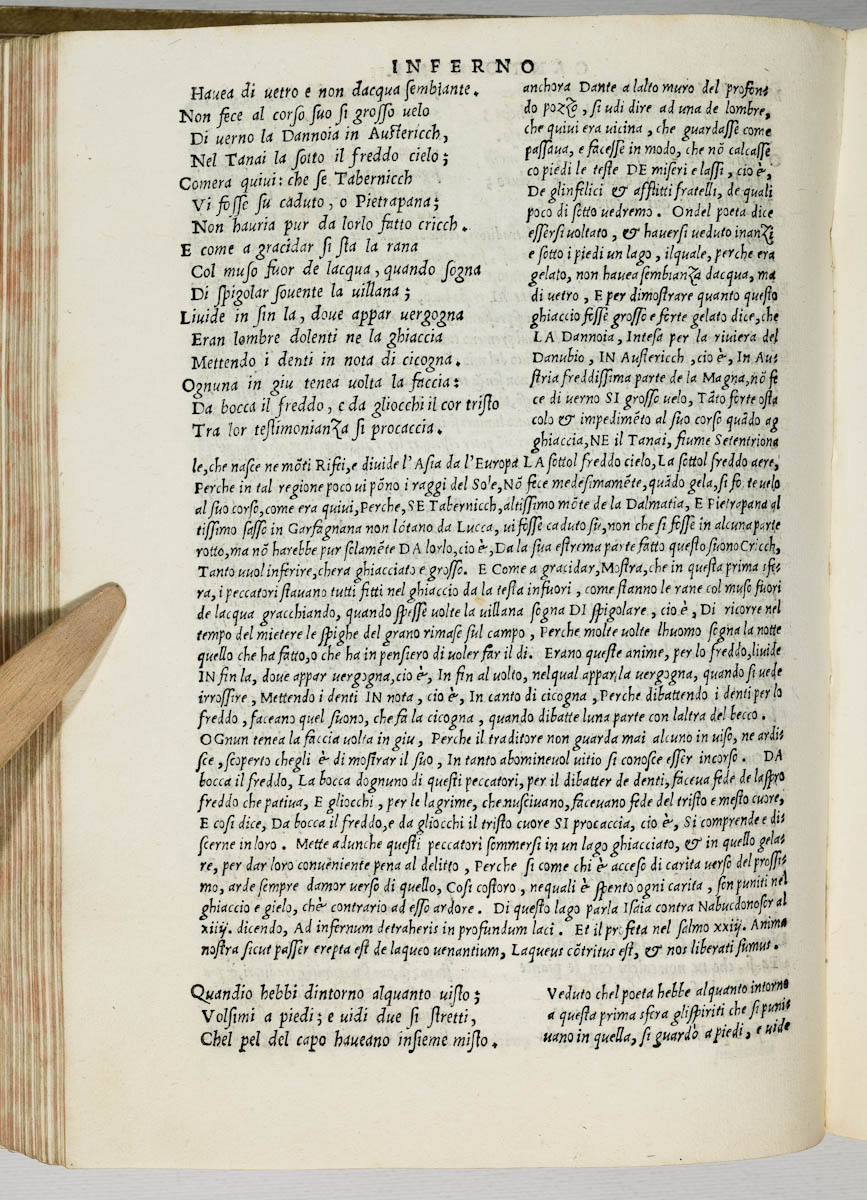 INFERNO
Hauea di uetro e non dacqua sembiante.
Non fece al corso suo si grosso uelo
Di uerno la Dannoia in Austericch,
Nel Tanai la sotto il freddo cielo;
Comera quiui: che se Tabernicch
Vi fosse su caduto, o Pietrapana;
Non hauria pur da lorlo fatto cricch.
E come a gracidar si sta la rana
Col muso fuor de lacqua, quando sogna
Di spigolar souente la uillana;
Liuide in sin la, doue appar uergogna
Eran lombre dolenti ne la ghiaccia
Mettendo i denti in nota di cicogna.
Ognuna in giu tenea uolta la faccia:
Da bocca il freddo, e da gliocchi il cor tristo
Tra lor testimonianza si procaccia.
anchora Dante a lalto muro del profon⸗
do pozzo, si udi dire ad una de lombre,
che quiui era uicina, che guardasse come
passaua, e facesse in modo, che nõ calcasse
co piedi le teste DE miseri e lassi, cio è,
De glinfelici & afflitti fratelli, de quali
poco di sotto uedremo. Ondel poeta dice
essersi uoltato, & hauersi ueduto inanzi
e sotto i piedi un lago, ilquale, perche era
gelato, non hauea sembianza dacqua, ma
di uetro, E per dimostrare quanto questo
ghiaccio fosse grosso e forte gelato dice, che
LA Dannoia, Intesa per la riuiera del
Danubio, IN Austericch, cio è, In Au⸗
stria freddissima parte de la Magna, nõ fe
ce di uerno SI grosso uelo, Tãto forte osta
colo & impedimẽto al suo corso quãdo ag
ghiaccia, NE il Tanai, fiume Setentriona
le, che nasce ne mõti Rifei, e diuide l'Asia da l'Europa LA sottol freddo cielo, La sottol freddo aere,
Perche in tal regione poco ui põno i raggi del Sole, Nõ fece medesimamẽte, quãdo gela, si fo te uelo
al suo corso, come era quiui, Perche, SE Tabernicch, altissimo mõte de la Dalmatia, E Pietrapana al
tissimo sasso in Garfagnana non lõtano da Lucca, ui fosse caduto su, non che si fosse in alcuna parte
rotto, ma nõ harebbe pur solamẽte DA lorlo, cio è, Da la sua estrema parte fatto questo suono Cricch,
Tanto uuol inferire, chera ghiacciato e grosso. E Come a gracidar, Mostra, che in questa prima sfe⸗
ra, i peccatori stauano tutti fitti nel ghiaccio da la testa infuori, come stanno le rane col muso fuori
de lacqua gracchiando, quando spesse uolte la uillana sogna DI spigolare, cio è, Di ricorre nel
tempo del mietere le spighe del grano rimase sul campo, Perche molte uolte lhuomo sogna la notte
quello che ha fatto, o che ha in pensiero di uoler far il di. Erano queste anime, per lo freddo, liuide
IN fin la, doue appar uergogna, cio è, In fin al uolto, nelqual appar la uergogna, quando si uede
irrossire, Mettendo i denti IN nota, cio è, In canto di cicogna, Perche dibattendo i denti per lo
freddo, faceano quel suono, che fa la cicogna, quando dibatte luna parte con laltra del becco.
OGnun tenea la faccia uolta in giu, Perche il traditore non guarda mai alcuno in uiso, ne ardi⸗
sce, scoperto chegli è di mostrar il suo, In tanto abomineuol uitio si conosce esser incorso. DA
bocca il freddo, La bocca dognuno di questi peccatori, per il dibatter de denti, faceua fede de laspro
freddo che patiua, E gliocchi, per le lagrime, che nusciuano, faceuano fede del tristo e mesto cuore,
E cosi dice, Da bocca il freddo, e da gliocchi il tristo cuore SI procaccia, cio è, Si comprende e di⸗
scerne in loro. Mette adunche questi peccatori sommersi in un lago ghiacciato, & in quello gela⸗
re, per dar loro conuẽniente pena al delitto, Perche si come chi è acceso di carita uerso del prossi⸗
mo, arde sempre damor uerso di quello, Cosi costoro, nequali è spento ogni carita, son puniti nel
ghiaccio e gielo, chè contrario ad esso ardore. Di questo lago parla Isaia contra Nabucdonosor al
xiiij. dicendo, Ad infernum detraheris in profundum laci. Et il profeta nel salmo xxiij. Anima
nostra sicut passer erepta est de laqueo uenantium, Laqueus cõtritus est, & nos liberati sumus.
Quandio hebbi dintorno alquanto uisto;
Volsimi a piedi; e uidi due si stretti,
Chel pel del capo haueano insieme misto.
Veduto chel poeta hebbe alquanto intorno
a questa prima sfera glispiriti che si puni⸗
uano in quella, si guardò a piedi, e uide